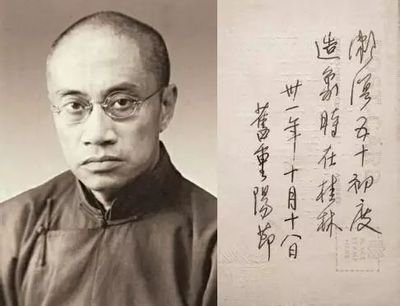 漱溟五十初度
造象時在桂林
卅一年十月十八日
舊重陽節